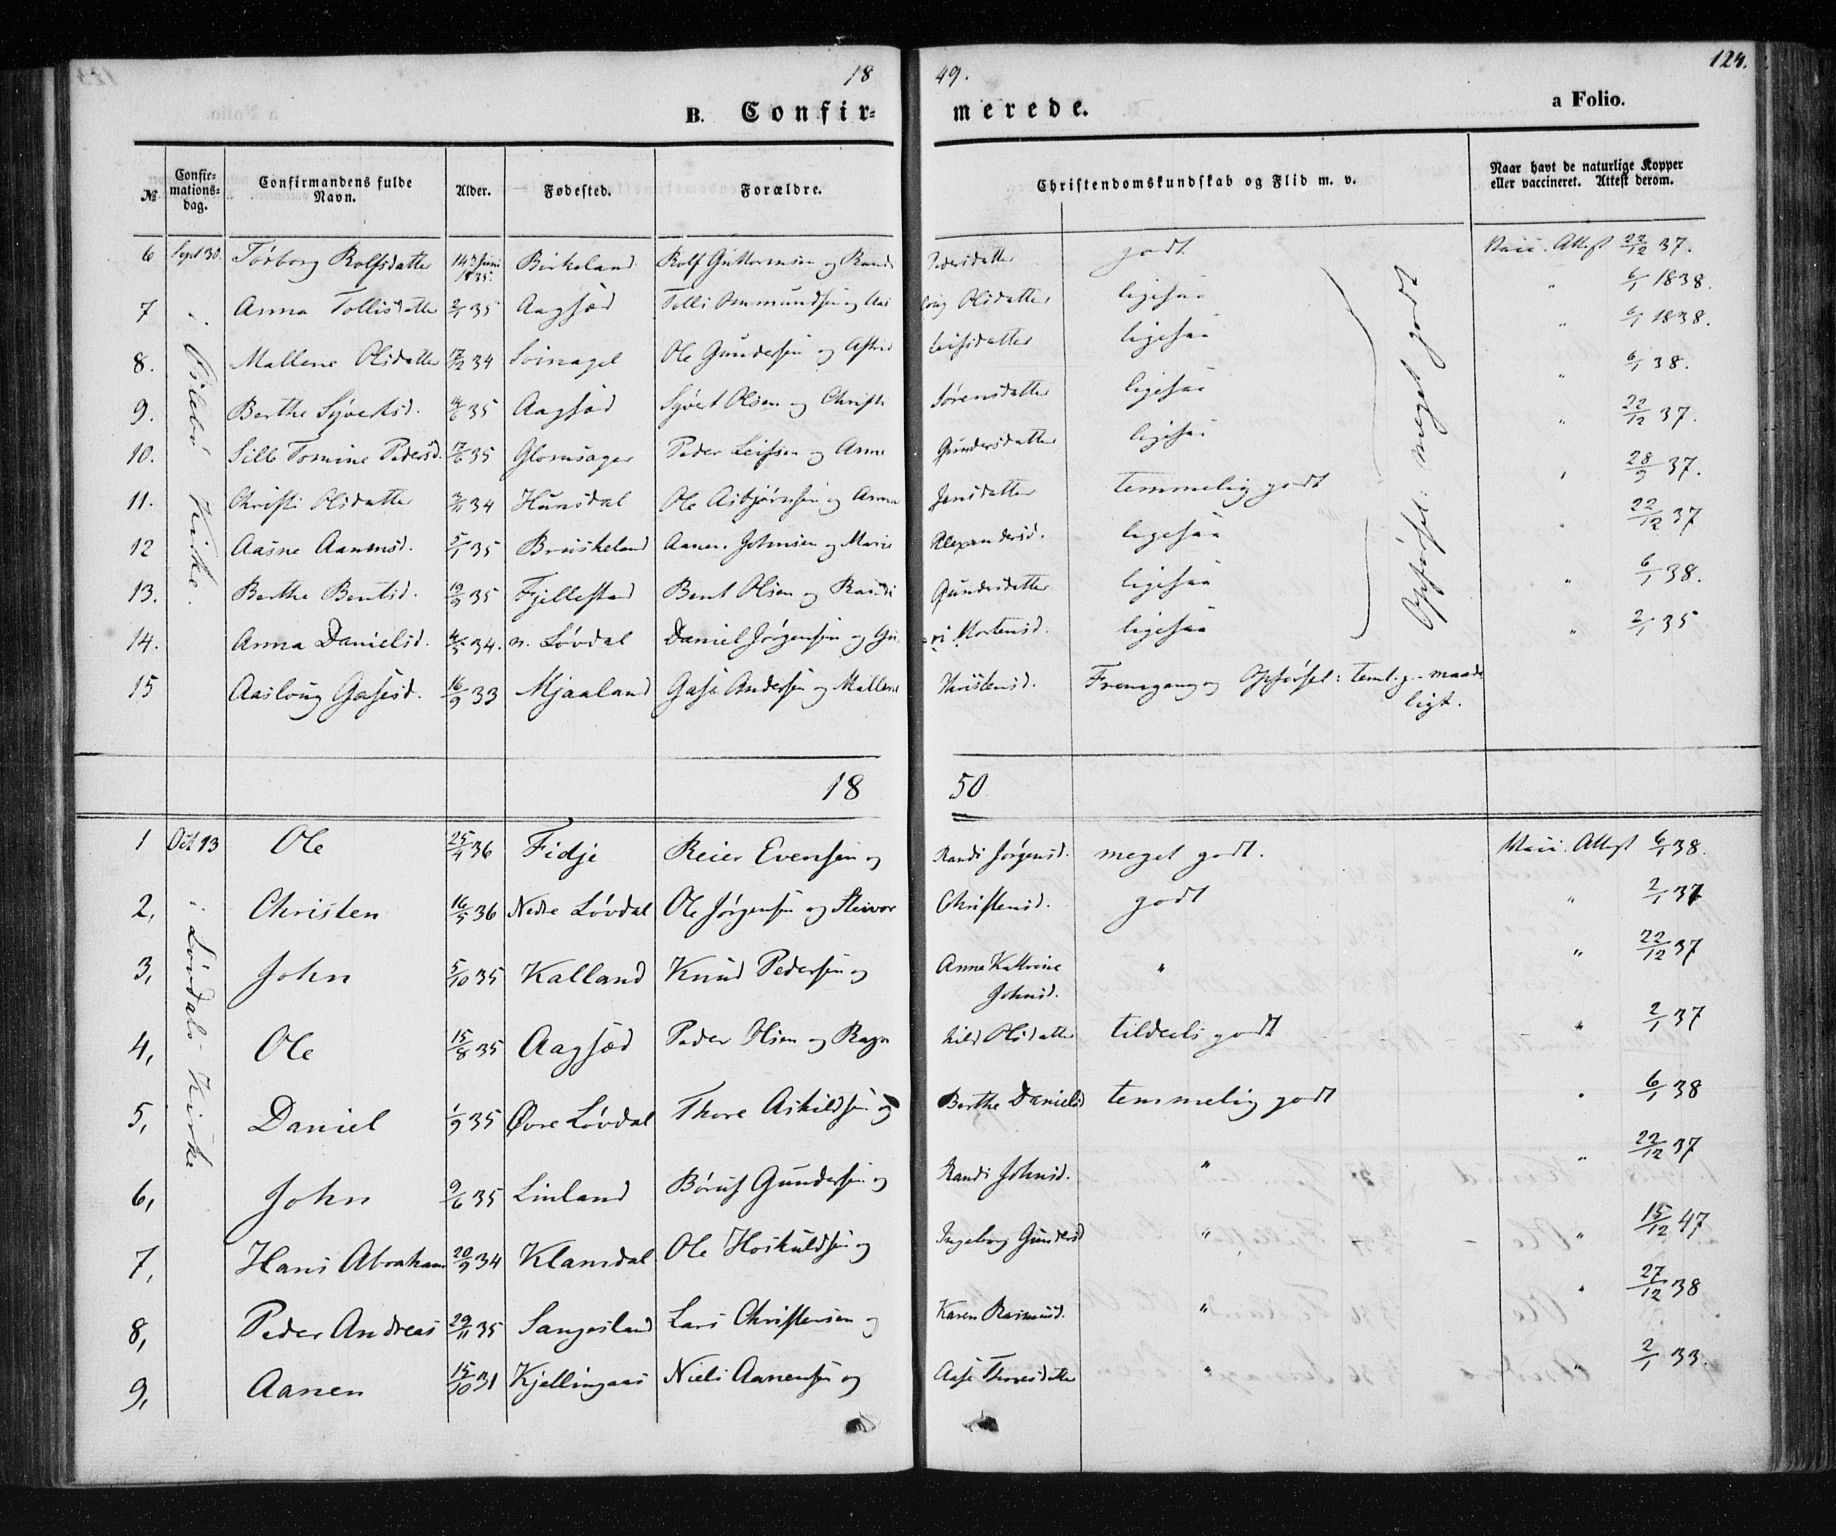 18 49. 124.
B. Confir- merede. a Folio.
№ Confir-mations-dag. Confirmandens fulde Navn. Alder. Fødested. Forældre. Christendomskundskab og Flid m. v. Naar havt de naturlige Kopper eller vaccineret. Attest derom.
6 Sept 30. Törborg Rolfsdatter 14 3 Juni 1835. Birkeland Rolf Guttormsen og Randi Pedersdatter godt Vacc. Attest 22/12 37.
7 Anna Tollisdatter 2/1 35 Aagsæd Tolli Ommundsen og Aas loug Olsdatter ligesaa " 6/1 1838.
8. Mallene Olsdatter 17/12 34 Soinagel Ole Gundersen og Astrid Leifsdatter ligesaa " 6/1 1838.
9. Berthe Syvertsd. 35 Aagsæd Syvert Olsen og Christi Sörensdatter ligesaa " 6/1 38.
10. Sille Tomine Pedersd. 17/6 35 Glomsager Peder Leifsen og Anne Gundersdatter ligesaa " 22/12 37.
11. Christi Olsdatter 34 Hunsdal Ole Asbjörnsen og Anna Jensdatter temmelig godt " 28/9 37.
12 Aasne Aanensd. 5/1 35 Bruskeland Aanen Johnsen og Marie Alexandersd. ligesaa " 22/12 37
13. Berthe Bentsd. 19/9 35 Fjellestad Bent Olsen og Randi Gundersdatter ligesaa " 6/1 38.
14. Anna Danielsd. 4/5 34. n. Lövdal Daniel Jörgensen og Gu ri Mortensd. ligesaa " 2/1 35
15 Aasloug Gasesd. 16/9 33 Mjaaland Gase Andersen og Mallene Christensd. Fremgang og Opförsel: teml. g. maade ligt.
i Oslebö Kirke.
Opförsel: meget godt
18 50
1 Oct 13 Ole 25/4 36 Fidje Reier Evensen og Randi Jörgensd. meget godt. Vacc. Attest 6/1 38.
2, Christen 16/5 36 Nedre Lövdal Ole Jörgensen og Steivor Christensd. godt " 2/1 37
3, John 5/10 35 Kalland Knud Pedersen og Anne Kathrine Johnsd. " " 22/12 37
4, Ole 15/8 35 Aagsæd Peder Olsen og Ragn hild Olsdatter tildeels godt " 2/1 37
5, Daniel 1/9 35 Övre Lövdal Thore Askildsen og Berthe Danielsd temmelig godt " 6/1 38
6, John 9/6 35 Linland Börus Gundersen og Randi Johnsd. " " 22/12 37
7, Hans Abraham 20/9 34 Klamdal Ole Hoskuldsen og Ingeborg Gundersd " " 15/12 47
8, Peder Andreas 29/11 35 Sangesland Lars Christensen og Karen Rasmusd. " " 27/12 38
9, Aanen 15/10 31 Kjellingaas Niels Aanensen og Aase Thoresdatter " " 2/1 33.
i Lövdals Kirke